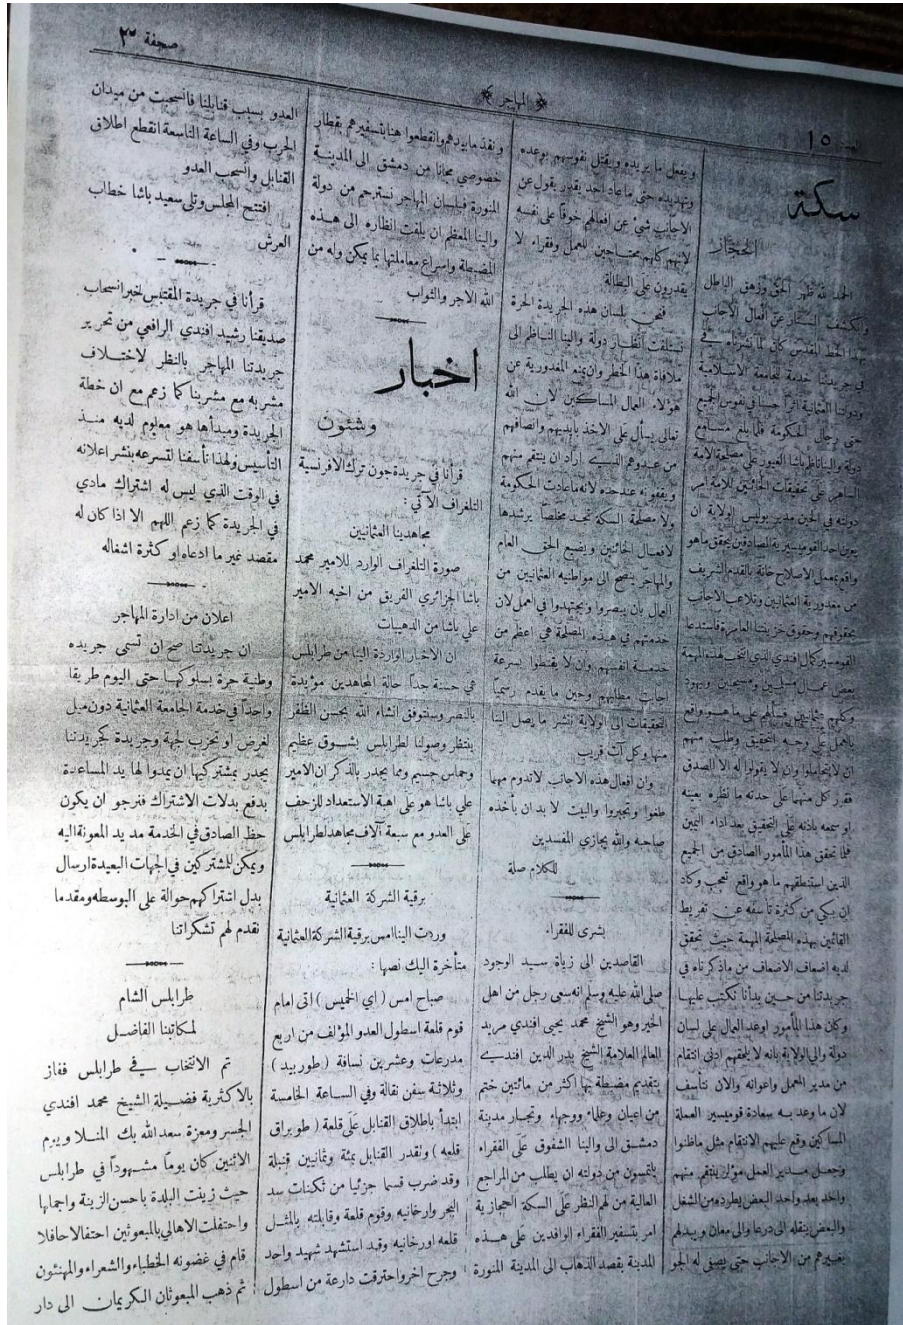 العدد ١٥
﴿ المهاجر ﴾
صحيفة ٣
سكة
الحجاز
الحمد لله ظهر الحق وزهق الباطل
وانكشف الستار عن أفعال الأجانب
بهذا الخط المقدس كان لما نشرناه في
في جريدتنا خدمة للجامعة الاسلامية
ودولتنا العثمانية أثراً حسناً في نفوس الجميع
حتى رجال الحكومة فلما بلغ مسامع
دولة والينا ناظم باشا الغيور على مصلحة الامة
الساهر على تحقيقات الخائنين للامة امر
دولته في الحين مدير بوليس الولاية ان
يعين احد القوميسيرية الصادقين لتحقق ما هو
واقع بمعمل الاصلاح خانة بالقدم الشريف
من مغدورية العثمانيين وتلاعب الاجانب
بحقوقهم وحقوق خزينتنا العامرة فاستدعا
القوميسير كمال افندي الذي انتخب لهذه المهمة
بعض عمال مسلمين ومسيحيين ويهود
وكلهم عثمانيين فسألهم على ما هو واقع
بالعمل على وجه التحقيق وطلب منهم
ان لا يتحاملوا وان لا يقولوا له الا الصدق
فقرر كل منهما على حدته ما نظره بعينه
او سمعه بأذنه على التحقيق بعد اداء اليمين
فلما تحقق هذا المأمور الصادق من الجميع
الذين استنطقهم ما هو واقع تعجب وكاد
ان يبكي من كثرة تأسفه عن تفريط
القائمين بهذه المصلحة المهمة حيث تحقق
لديه اضعاف الاضعاف من ما ذكرناه في
جريدتنا من حين بدأنا نكتب عليها
وكان هذا المأمور اوعد العمال على لسان
دولة والي الولاية بانه لا يلحقهم ادنى انتقام
من مدير المعمل واعوانه والان نتأسف
لان ما وعد به سعادة قوميسير العملة
المساكين وقع عليهم الانتقام مثل ما ظنوا
وجعل مدير العمل مؤلر ينتقم منهم
واحد بعد واحد البعض يطرده من الشغل
والبعض ينقله الى درعا والى معان ويبدلهم
بغيرهم من الاجانب حتى يصفى له الجو
ويفعل ما يريده ويقتل نفوسهم بوعده
وتهديده حتى ما عاد احد يقدر يقول عن
الاجانب شيء عن افعالهم خوفاً على نفسه
لانهم كلهم محتاجين للعمل وفقراء لا
يقدرون على البطالة
فنحن بلسان هذه الجريدة الحرة
نستلفت انظار دولة والينا الناظم الى
ملافاة هذا الخطر وان يمنع المغدورية عن
هؤلاء العمال المساكين لان الله
تعالى يسأل على الاخذ بايديهم وانصافهم
من عدوهم الذي اراد ان ينتقم منهم
ويقفونه عند حده لانه ما عادت الحكومة
ولا مصلحة السكة تجد مخلصاً يرشدها
لافعال الخائنين ويضيع الحق العام
والمهاجر ينصح الى مواطنيه العثمانيين من
العمال بان يصبروا ويجتهدوا في العمل لان
خدمتهم في هذه المصلحة هي اعظم من
خدمة انفسهم وان لا يقنطوا بسرعة
اجابت مطالبهم وحين ما يقدم رسمياً
التحقيقات الى الولاية ننشر ما يصل الينا
منها وكل آت قريب
وان افعال هذه الاجانب لا تدوم مهما
طغوا وتجبروا والبيت لا بد ان يأخذه
صاحبه والله يجازي المفسدين
للكلام صلة
بشرى للفقراء
القاصدين الى زيارة سيد الوجود
صلى الله عليه وسلم انه سعى رجل من اهل
الخير وهو الشيخ محمد يحيى افندي مريد
العالم العلامة الشيخ بدر الدين افندي
بتقديم مضبطة بها اكثر من مائتين ختم
من اعيان وعلماء ووجهاء وتجار مدينة
دمشق الى والينا الشفوق على الفقراء
يلتمسون من دولته ان يطلب من المراجع
العالية من لهم النظر على السكة الحجازية
امر بتسفير الفقراء الوافدين على هذه
المدينة بقصد الذهاب الى المدينة المنورة
ونفذ ما بيدهم وانقطعوا هنا بتسفيرهم بقطار
خصوصي مجاناً من دمشق الى المدينة
المنورة فبلسان المهاجر نسترحم من دولة
والينا المعظم ان يلفت انظاره الى هذه
المضبطة واسراع معاملتها بما يمكن وله من
الله الاجر والثواب
اخبار
وشئون
قرأنا في جريدة جون ترك الافرنسية
التلغراف الآتي :
مجاهدينا العثمانيين
صورة التلغراف الوارد للامير محمد
باشا الجزائري الفريق من اخيه الامير
علي باشا من الذهيبات
ان الاخبار الواردة الينا من طرابلس
هي حسنة جداً حالة المجاهدين مؤيدة
بالنصر وسنتوفق انشاء الله بحسن الظفر
ينتظر وصولنا لطرابلس بشوق عظيم
وحماس جسيم ومما يجدر بالذكر ان الامير
علي باشا هو على اهبة الاستعداد للزحف
على العدو مع سبعة آلاف مجاهد لطرابلس
برقية الشركة العثمانية
وردت الينا امس برقية الشركة العثمانية
متأخرة اليك نصها :
صباح امس ( اي الخميس ) اتى امام
قوم قلعة اسطول العدو المؤلف من اربع
مدرعات وعشرين نسافة ( طوربيد )
وثلاثة سفن نقالة وفي الساعة الخامسة
ابتدأ باطلاق القنابل على قلعة ( طوبراق
قلعه ) وتقدر القنابل بمئة وثمانين قنبلة
وقد ضرب قسما جزئيا من ثكنات سد
البحر وارخانيه وقوم قلعة وقابلته بالمثل
قلعه اورخانيه وقد استشهد شهيد واحد
وجرح اخر واحترقت دارعة من اسطول
العدو بسبب قنابلنا فانسحبت من ميدان
الحرب وفي الساعة التاسعة انقطع اطلاق
القنابل وانسحب العدو
افتتح المجلس وتلى سعيد باشا خطاب
العرش
قرأنا في جريدة المقتبس خبر انسحاب
صديقنا رشيد افندي الرافعي من تحرير
جريدتنا المهاجر بالنظر لاختلاف
مشربه مع مشربنا كما زعم مع ان خطة
الجريدة ومبدأها هو معلوم لديه منذ
التأسيس ولهذا تأسفنا لتسرعه بنشر اعلانه
في الوقت الذي ليس له اشتراك مادي
في الجريدة كما زعم اللهم الا اذا كان له
مقصد غير ما ادعاه او كثرة اشغاله
اعلان من ادارة المهاجر
ان جريدتنا صح ان تسمى جريده
وطنية حرة بسلوكها حتى اليوم طريقا
واحداً في خدمة الجامعة العثمانية دون ميل
لغرض او تحزب لجهة وجريدة كجريدتنا
يجدر بمشتركيها ان يمدوا لها يد المساعدة
بدفع بدلات الاشتراك فنرجو ان يكون
حظ الصادق في الخدمة مد يد المعونة اليه
ويمكن للمشتركين في الجهات البعيدة ارسال
بدل اشتراكهم حوالة على البوسطه ومقدما
نقدم لهم تشكراتنا
طرابلس الشام
لمكاتبنا الفاضل
تم الانتخاب في طرابلس ففاز
بالاكثرية فضيلة الشيخ محمد افندي
الجسر ومعزة سعد الله بك المنلا ويوم
الاثنين كان يوماً مشهوداً في طرابلس
حيث زينت البلدة باحسن الزينة واجملها
واحتفلت الاهالي بالمبعوثين احتفالا حافلا
قام في غضونه الخطباء والشعراء والمهنئون
ثم ذهب المبعوثان الكريمان الى دار